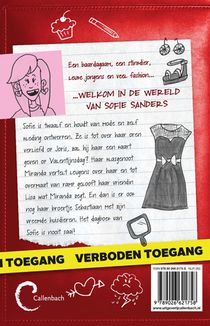 Een baardagaam, een stinkdier,
leuke jongens en veel fashion...
...WELKOM IN DE WERELD
VAN SOFIE SANDERS
Sofie is twaalf en houdt van mode en zelf
kleding ontwerpen. Ze is tot over haar oren
verliefd op Joris, zal hij haar een kaart
geven op Valentijnsdag? Haar klasgenoot
Miranda vertelt leugens over haar en tot
overmaat van ramp gelooft haar vriendin
Lisa wat Miranda zegt. En dan is er ook
nog haar broertje Sebastiaan met zijn
vreemde huisdieren. Het dagboek van
Sofie is nooit saai!
N TOEGANG VERBODEN TOEGANG
Callenbach
www.uitgeverijcallenbach.nl
9 789026 621758